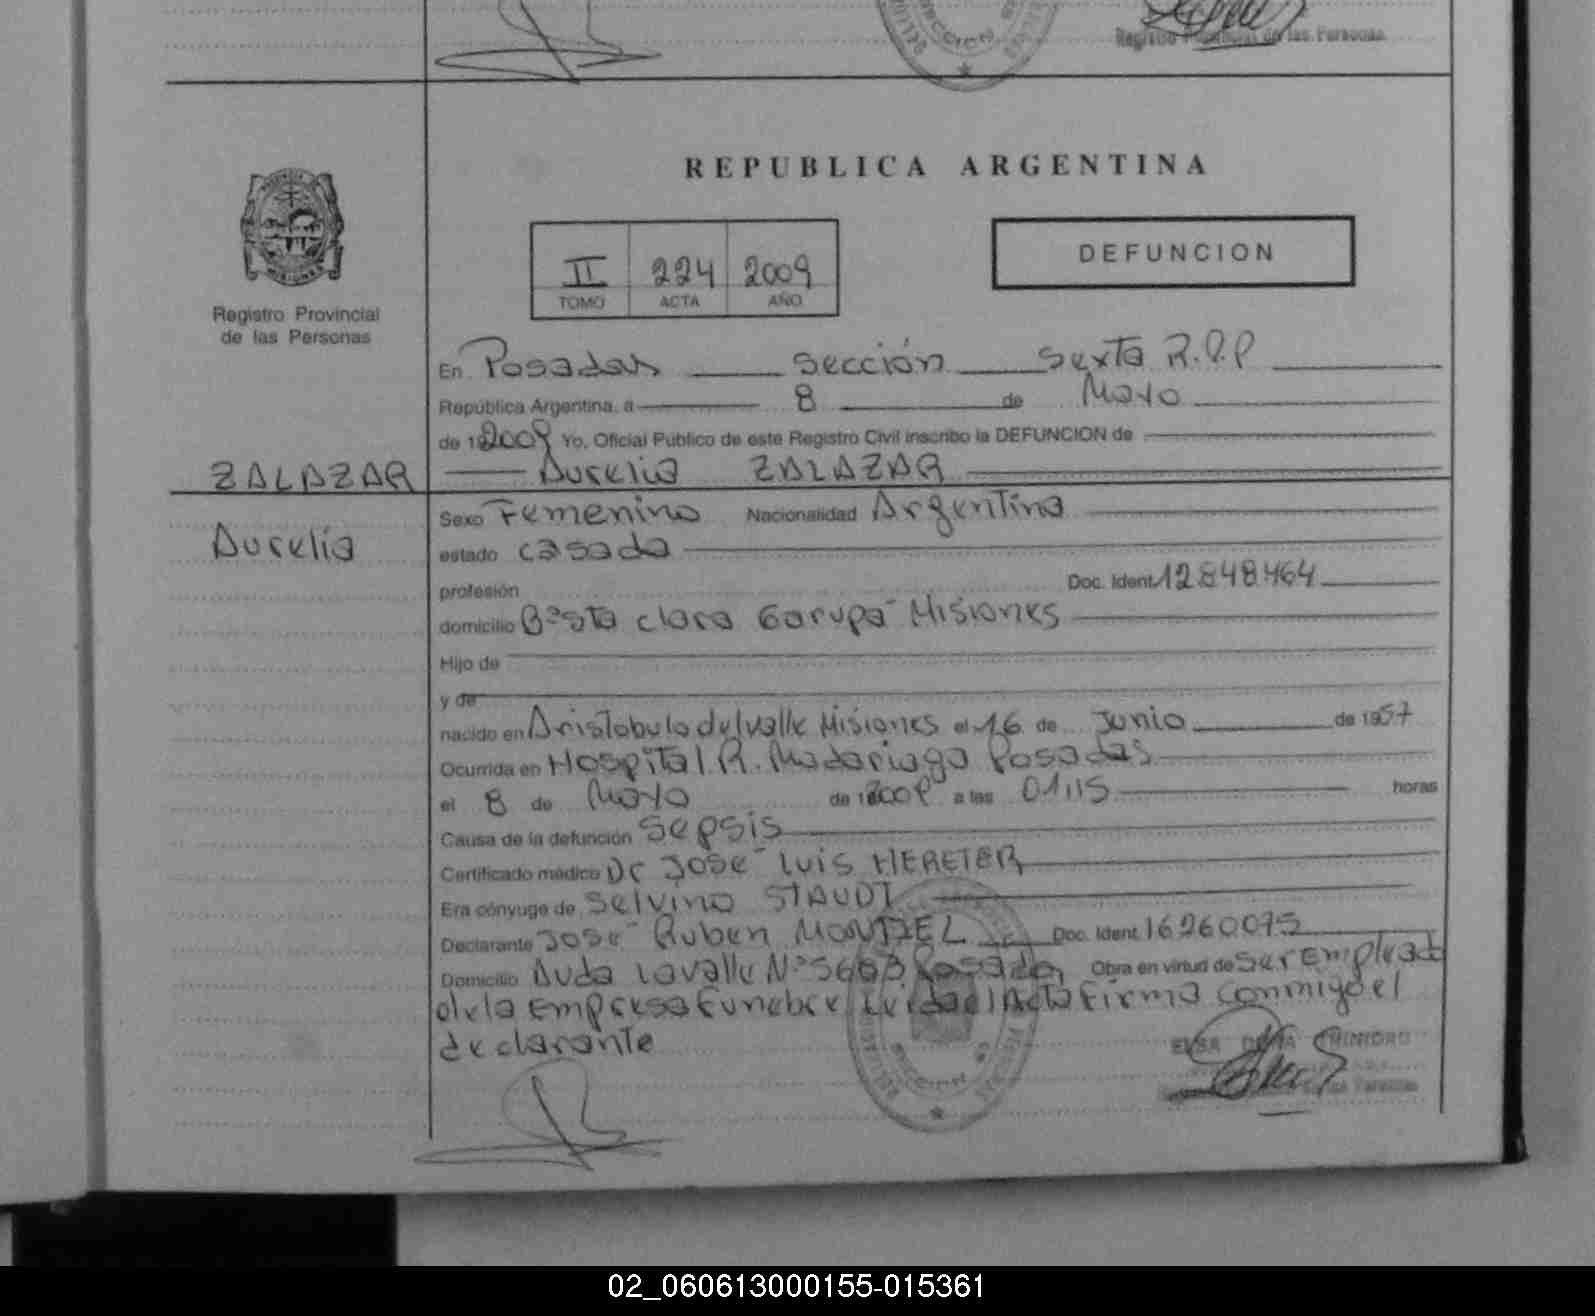 Registro Provincial de las Personas
REPUBLICA ARGENTINA
MISIONES
Registro Provincial
de las Personas
II 224 2009
TOMO ACTA AÑO
DEFUNCION
En Posadas sección sexta R.P.P
República Argentina, a 8 de Mayo
de 192009 Yo, Oficial Público de este Registro Civil inscribo la DEFUNCION de
ZALAZAR Aurelia ZALAZAR
Aurelia
Sexo Femenino Nacionalidad Argentina
estado casada
profesión Doc. Ident. 12848464
domicilio Bº Sta Clara Garupá Misiones
Hijo de
y de
nacido en Aristobulo del valle Misiones el 16 de Junio de 1957
Ocurrida en Hospital R. Madariaga Posadas
el 8 de Mayo de 2009 a las 01,15 horas
Causa de la defunción Sepsis
Certificado médico Dr José Luis HERETER
Era cónyuge de Selvino STAUDT
Declarante José Ruben MONTIEL Doc. Ident. 16260075
Domicilio Avda Lavalle Nº 5603 Posadas Obra en virtud de Ser Empleado
de la Empresa Funebre Leida el Acta Firma conmigo el
declarante
02_060613000155-015361